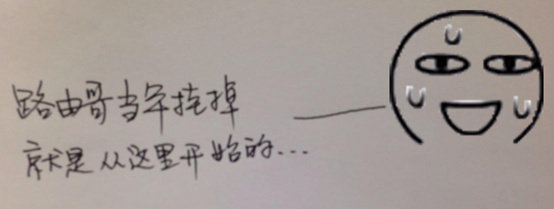 路由哥当年挂掉
就是从这里开始的...